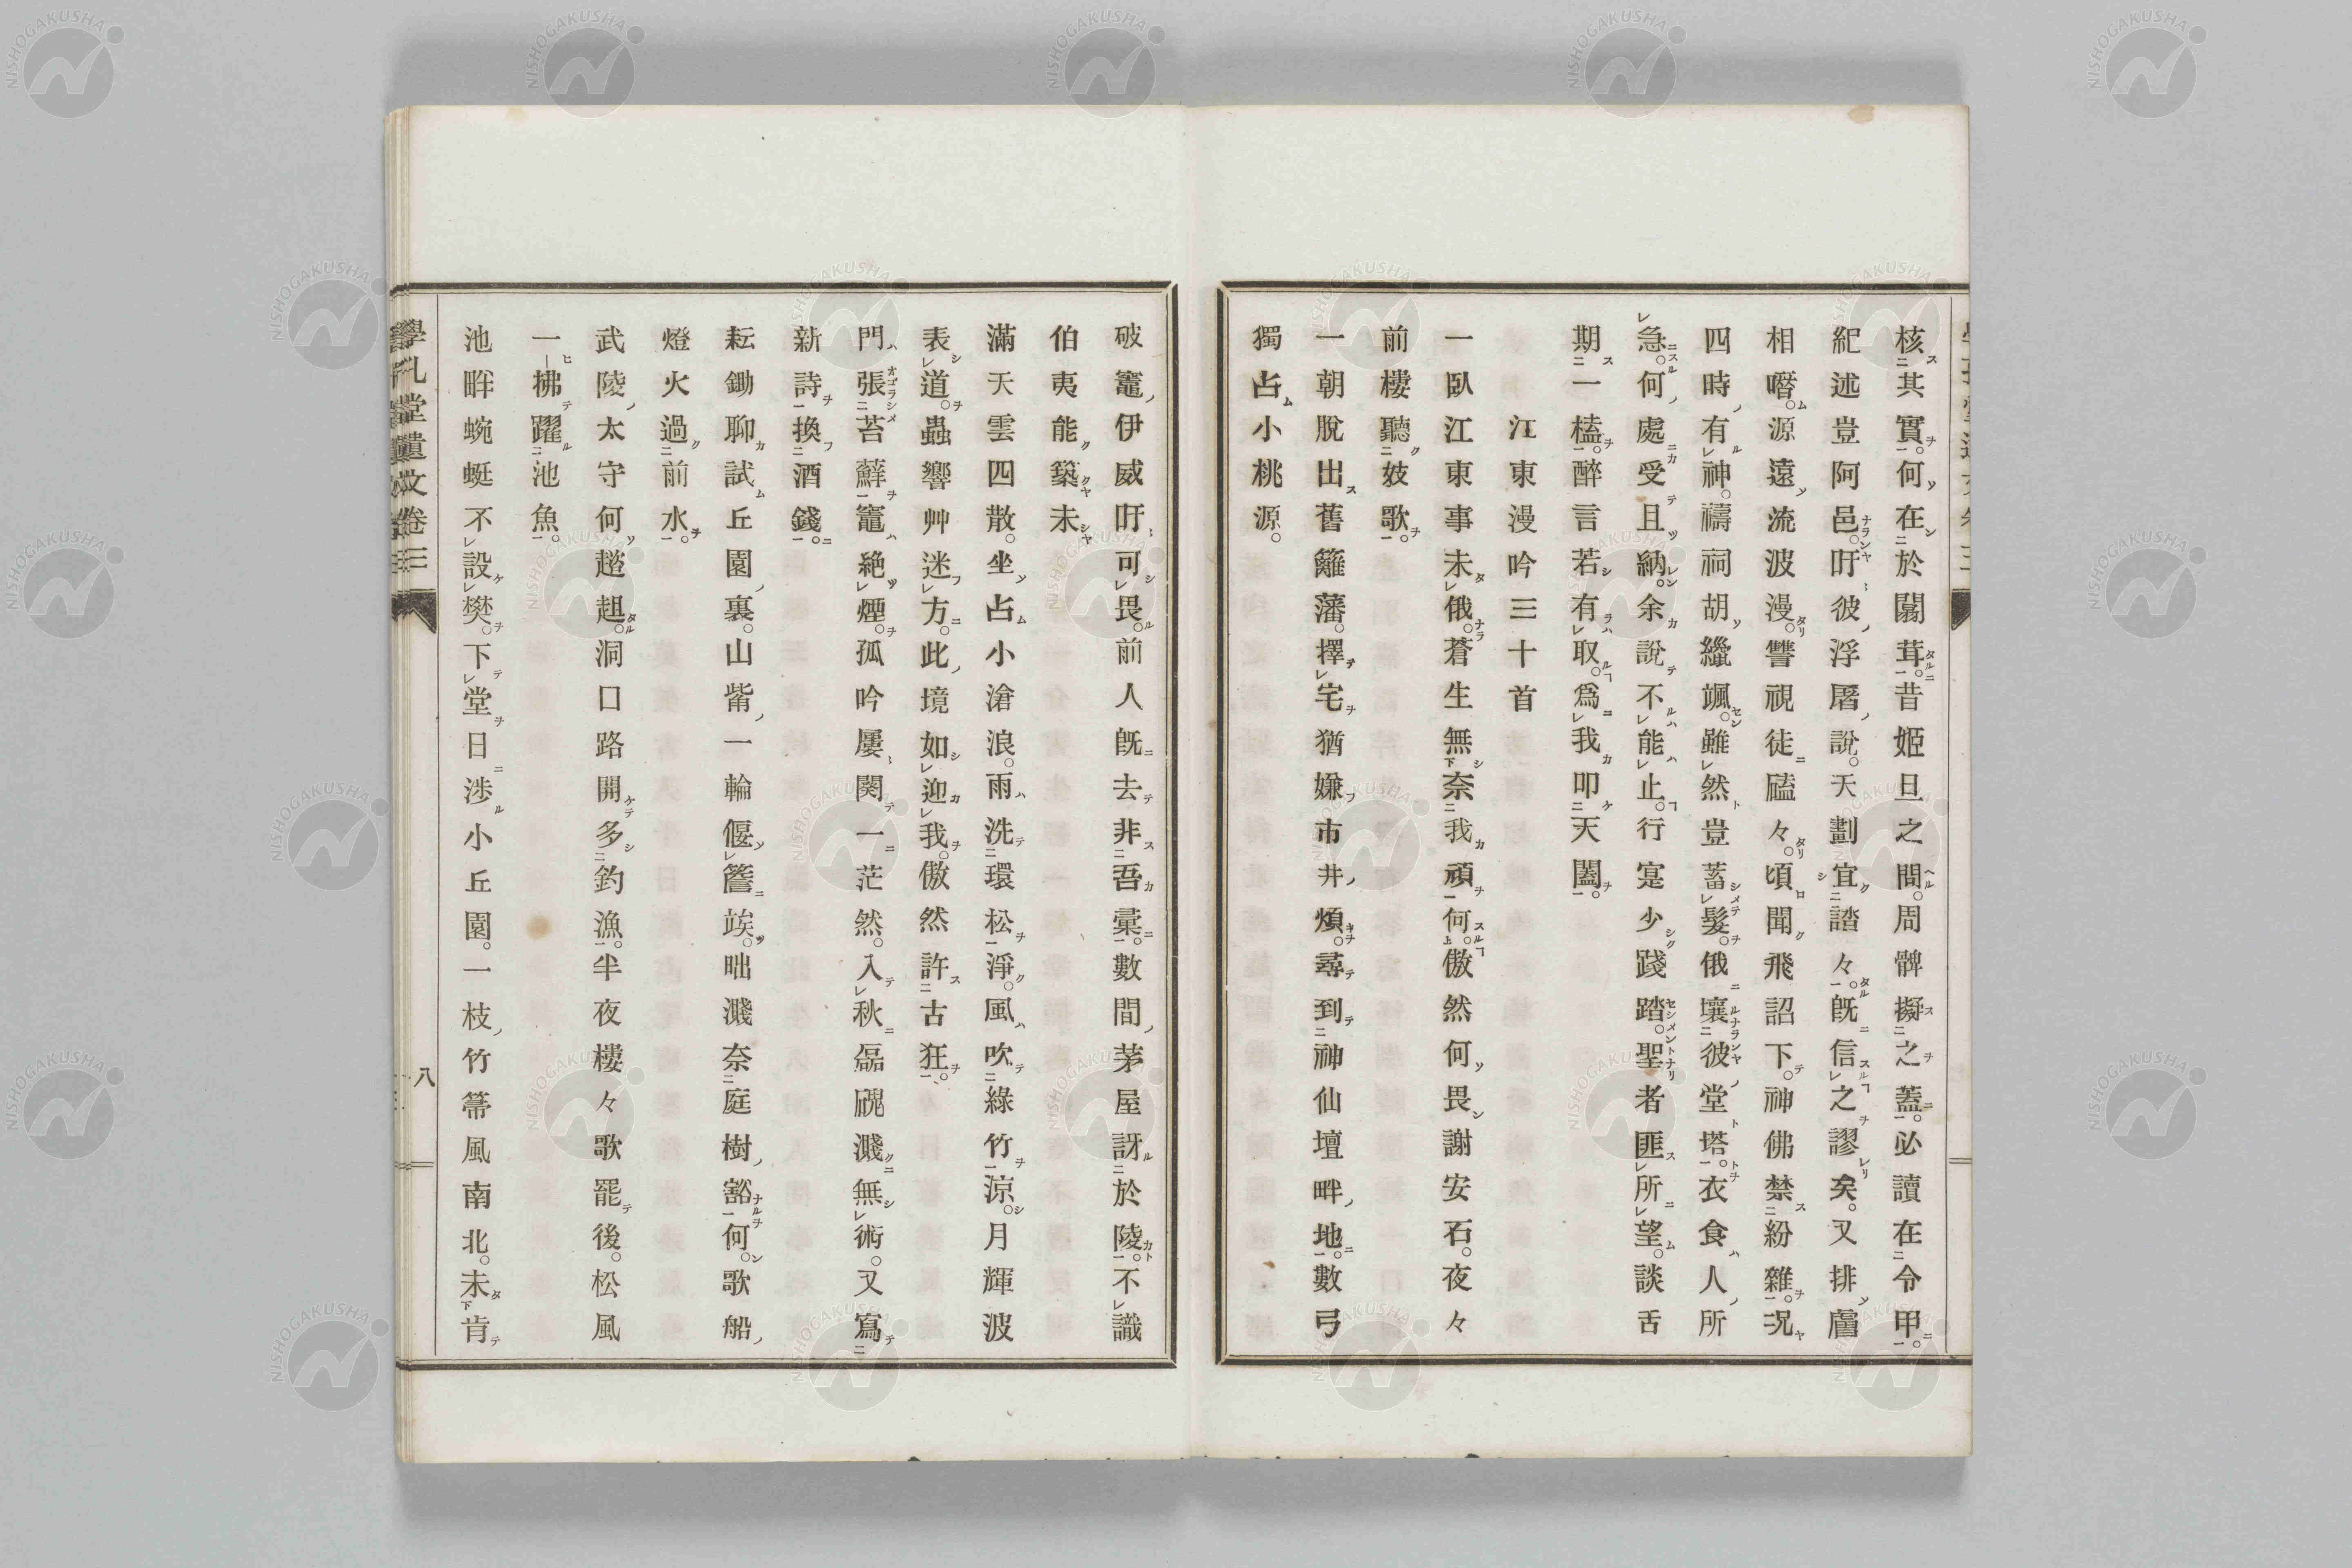 核其實何在於閼茸。昔姬旦之間。周髀擬之蓋。必讀在令甲。
紀述豈阿邑。吁彼浮屠說。天劃宜諮々。既信之謬矣。又排
相噆。源遠流波漫。讐視徒磕々。頃聞飛詔下。神佛禁紛雜。况
四時有神。禱祠胡纚颯。雖然豈蓄髮。俄壞彼堂塔。衣食人所
急。何處受且納。余說不能止。行寔少踐踏。聖者匪所望。談舌
期一榼。醉言若有取。爲我叩天闔。
江東漫吟三十首
一臥江東事未俄。蒼生無奈我頑何。傲然何畏謝安石。夜々
前樓聽妓歌。
一朝脫出舊籬藩。擇宅猶嫌市井煩。尋到神仙壇畔地。數弓
獨占小桃源。
破竈伊威吁可畏。前人既去非吾彙。數間茅屋訝於陵。不識
伯夷能築未
滿天雲四散。坐占小滄浪。雨洗環松淨。風吹綠竹涼。月輝波
表道。蟲響艸迷方。此境如迎我。傲然許古狂。
門張苔蘚竈絶煙。孤吟屢関一茫然。入秋磊磈濺無術。又寫
新詩換酒錢。
耘鋤聊試丘園裏。山觜一輪偃簷竢。咄濺奈庭樹豁何。歌船
燈火過前水。
武陵太守何趦趄。洞口路開多釣漁。半夜樓々歌罷後。松風
一拂躍池魚。
池畔蜿蜒不設樊。下堂日涉小丘園。一枝竹箒風南北。未肯
學孔堂遺文卷三
八